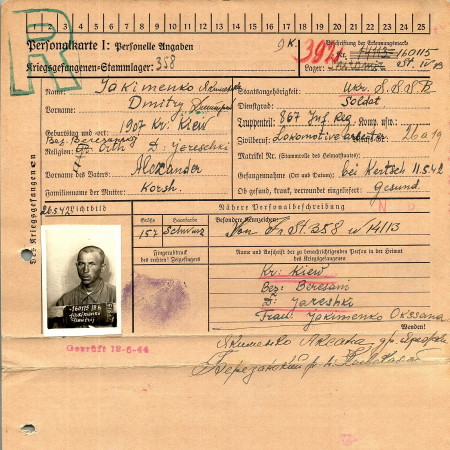 1 2 3 4 5 6 7 8 9 10 11 12 13 14 15 16 17 18 19 20 21 22 23 24 25
R
Personalkarte I: Personelle Angaben
Kriegsgefangenen-Stammlager: 358
Beschriftung der Erkennungsmarke
Nr. 14113 160115
Lager: St. IV B
Des Kriegsgefangenen
Name: Jakimenko
Vorname: Dmitry
Geburtstag und -ort: 1907 Kr. Kiew
Bez. Beresansky
Religion: D: Jereschki
Vorname des Vaters: Alexander
Familienname der Mutter: Korsh.
Staatsangehörigkeit: Ukr. S.S.S.R.
Dienstgrad: Soldat
Truppenteil: 867 Inf. Reg. Komp. usw.:
Zivilberuf: Lokomotivearbeiter 26a19
Matrikel Nr. (Stammrolle des Heimatstaates):
Gefangennahme (Ort und Datum): bei Kertsch 11.5.42
Ob gesund, krank, verwundet eingeliefert: Gesund
26.5.42 Lichtbild
Nähere Personalbeschreibung
Größe Haarfarbe
157 Schwarz
Besondere Kennzeichen:
Von St. 358 14113
Fingerabdruck
des rechten! Zeigefingers
Name und Anschrift der zu benachrichtigenden Person in der Heimat
des Kriegsgefangenen
Kr: Kiew
Bez: Beresani
D: Jareshki
Frau: Jakimenko Okssana
160115 IV B
Jakimenko
Dmitrij
Wenden!
Geprüft 12-6-44
Якименко Аксана
Березанский р.